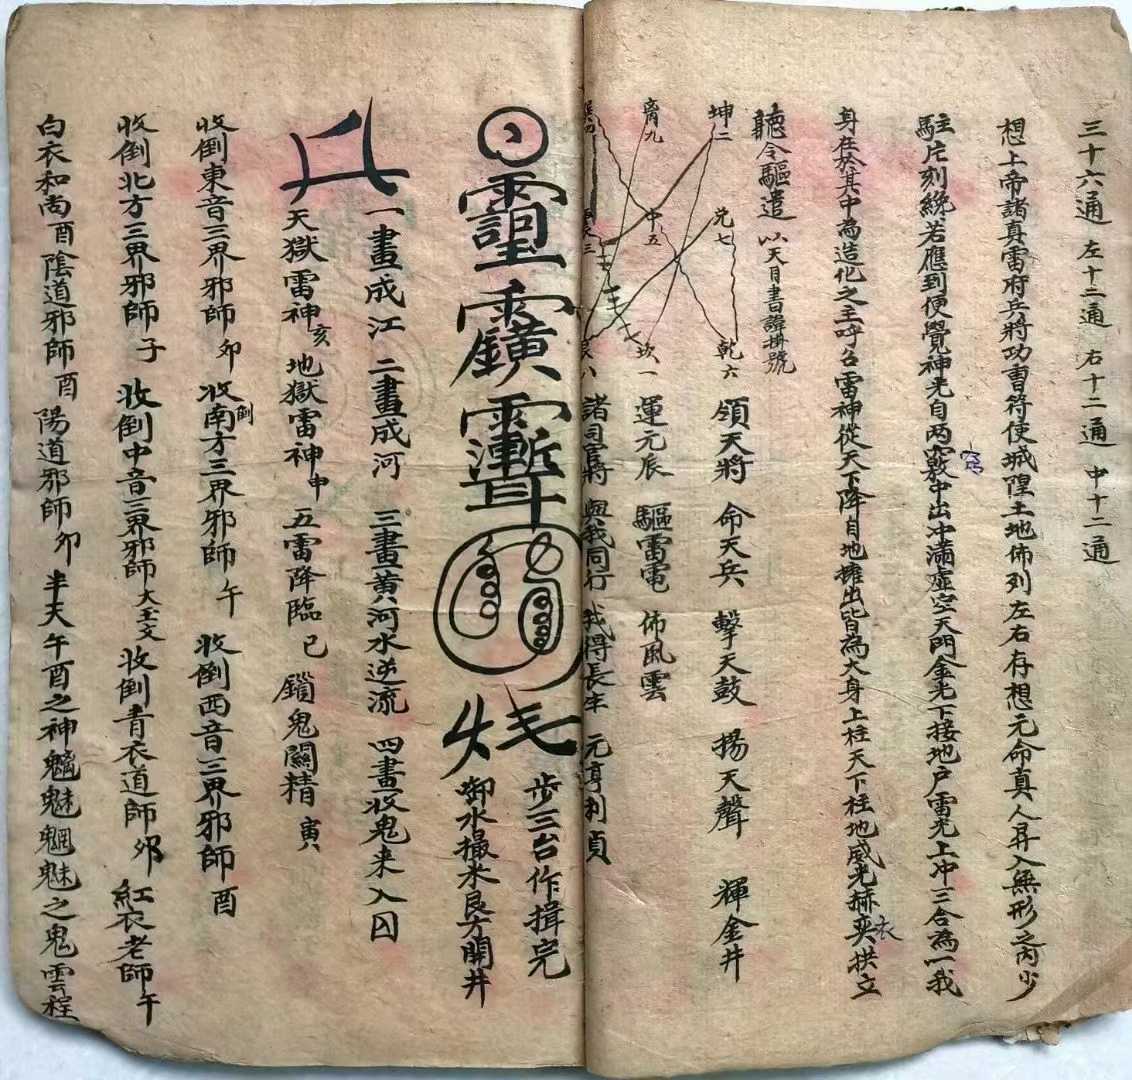 三十六通 左十二通 右十二通 中十二通
想上帝諸真雷府兵將功曹符使城隍土地佈列左右存想元命真人昇入無形之內少
駐片刻纔若應到便覺神光自两竅中出冲滿虛空天門金光下接地户雷光上冲三合為一我
身在於其中為造化之主呼召雷神從天下降自地擁出皆為大身上柱天下柱地威光赫奕拱立
聽令驅遣 以天目書諱掛號
坤二 兌七 乾六 領天將 命天兵 擊天鼓 揚天聲 輝金井
离九 中五 坎一 運元辰 驅雷電 佈風雲
八 諸司官將 與我同行 我得長生 元亨利貞
步三台作揖完
燒
啣水撮米艮方開井
一畫成江 二畫成河 三畫黄河水逆流 四畫收鬼来入囚
天獄雷神亥 地獄雷神申 五雷降臨巳 鎖鬼關精寅
收倒東音三界邪師卯 收倒南方三界邪師午 收倒西音三界邪師酉
收倒北方三界邪師子 收倒中音三界邪師大玉文 收倒青衣道師卯 紅衣老師午
白衣和尚酉陰道邪師酉陽道邪師卯半天午酉之神魑魅魍魅之鬼雲程